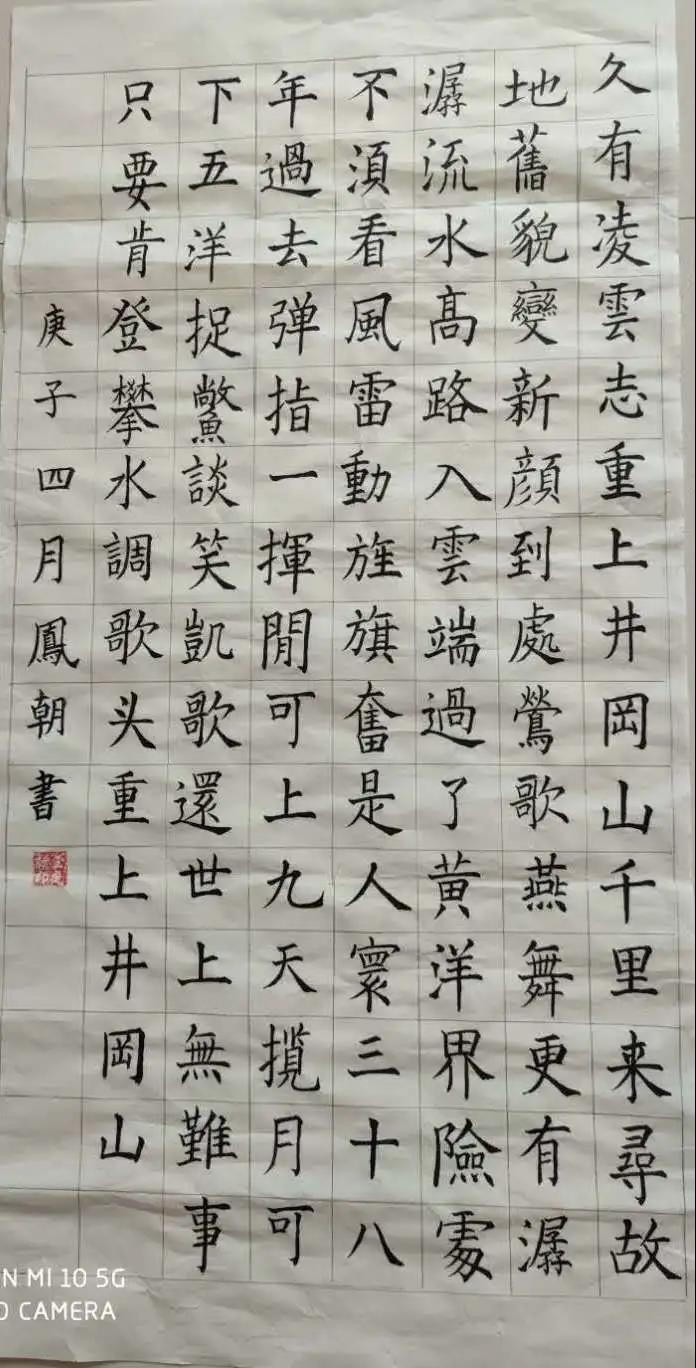 久有凌雲志重上井岡山千里来尋故
地舊貌變新顔到處鶯歌燕舞更有潺
潺流水髙路入雲端過了黃洋界險處
不須看風雷動旌旗奮是人寰三十八
年過去弹指一揮閒可上九天攬月可
下五洋捉鱉談笑凱歌還世上無難事
只要肯登攀水調歌头重上井岡山
庚子四月鳳朝書
N MI 10 5G
CAMERA